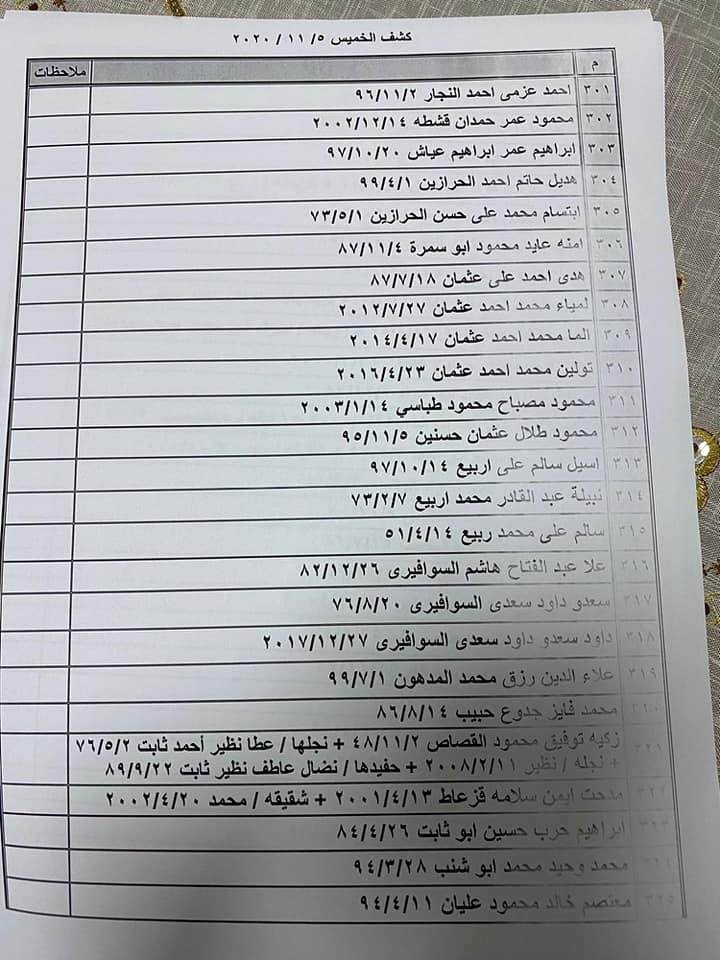 كشف الخميس ٥/ ١١ / ٢٠٢٠
م ملاحظات
٣٠١ احمد عزمى احمد النجار ٩٦/١١/٢
٣٠٢ محمود عمر حمدان قشطه ٢٠٠٢/١٢/١٤
٣٠٣ ابراهيم عمر ابراهيم عياش ٩٧/١٠/٢٠
٣٠٤ هديل حاتم احمد الحرازين ٩٩/٤/١
٣٠٥ ابتسام محمد على حسن الحرازين ٧٣/٥/١
٣٠٦ امنه عايد محمود ابو سمرة ٨٧/١١/٤
٣٠٧ هدى احمد على عثمان ٨٧/٧/١٨
٣٠٨ لمياء محمد احمد عثمان ٢٠١٢/٧/٢٧
٣٠٩ الما محمد احمد عثمان ٢٠١٤/٤/١٧
٣١٠ تولين محمد احمد عثمان ٢٠١٦/٤/٢٣
٣١١ محمود مصباح محمود طباسي ٢٠٠٣/١/١٤
٣١٢ محمود طلال عثمان حسنين ٩٥/١١/٥
٣١٣ اسيل سالم على اربيع ٩٧/١٠/١٤
٣١٤ نبيلة عبد القادر محمد اربيع ٧٣/٢/٧
٣١٥ سالم على محمد ربيع ٥١/٤/١٤
٣١٦ علا عبد الفتاح هاشم السوافيرى ٨٢/١٢/٢٦
٣١٧ سعدو داود سعدى السوافيرى ٧٦/٨/٢٠
٣١٨ داود سعدو داود سعدى السوافيرى ٢٠١٧/١٢/٢٧
٣١٩ علاء الدين رزق محمد المدهون ٩٩/٧/١
٣٢٠ محمد فايز جدوع حبيب ٨٦/٨/١٤
٣٢١ زكيه توفيق محمود القصاص ٤٨/١١/٢ + نجلها / عطا نظير أحمد ثابت ٧٦/٥/٢
+ نجله / نظير ٢٠٠٨/٢/١١ + حفيدها / نضال عاطف نظير ثابت ٨٩/٩/٢٢
٣٢٢ مدحت ايمن سلامه قزعاط ٢٠٠١/٤/١٣ + شقيقه / محمد ٢٠٠٢/٤/٢٠
٣٢٣ ابراهيم حرب حسين ابو ثابت ٨٤/٤/٢٦
٣٢٤ محمد وحيد محمد ابو شنب ٩٤/٣/٢٨
٣٢٥ معتصم خالد محمود عليان ٩٤/٤/١١